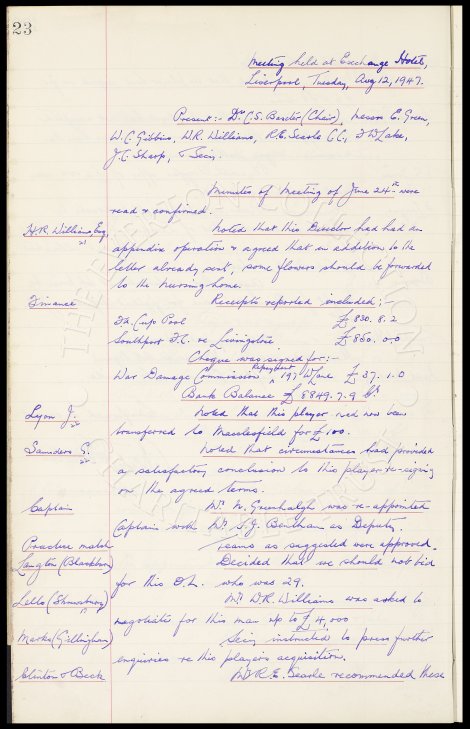 23
Meeting held at Exchange Hotel,
Liverpool, Tuesday, Aug 12, 1947.
Present:- Dr C.S. Baxter (Chair), Messrs E. Green,
W.C. Gibbins, W.R. Williams, R.E. Searle C.C., F.W Lake,
J.C. Sharp, & Secy.
Minutes of Meeting of June 24th were
read & confirmed.
H.R. Williams, Esq. Noted that this Director had had an
appendix operation & agreed that in addition to the
letter already sent, some flowers should be forwarded
to the Nursing home.
Finance Receipts reported included:-
FA. Cup Pool £830. 8. 2
Southport F.C. re Livingstone £850. 0.0
Cheque was signed for:-
War Damage Commission Repayment 197 Lane £37. 1. 0
Bank Balance £8849. 7. 9 Cr
Lyon J. Noted that this player had now been
transferred to Macclesfield for £100.
Saunders G. Noted that circumstances had provided
a satisfactory conclusion to this player re-signing
on the agreed terms.
Captain Mr. N. Greenhalgh was re-appointed
Captain with Mr. S.J. Bentham as Deputy.
Practice match Teams as suggested were approved.
Langton (Blackburn) Decided that we should not bid
for this O.L. who was 29.
Lello (Shrewsbury) Mr. W.R. Williams was asked to
negotiate for this man up to £4,000
Marks (Gillingham) Secy instructed to press further
enquiries re this players acquisition.
Clinton & Beck Mr R.E. Searle recommended these